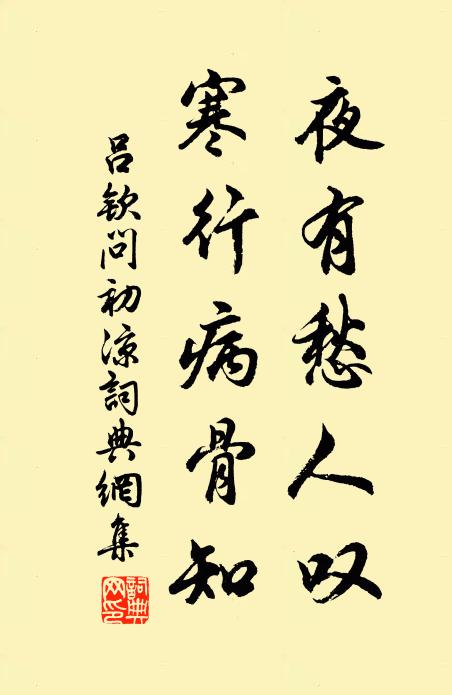 夜有愁人叹
寒行病骨知
吕钦问初凉詞典網集
詞典网印